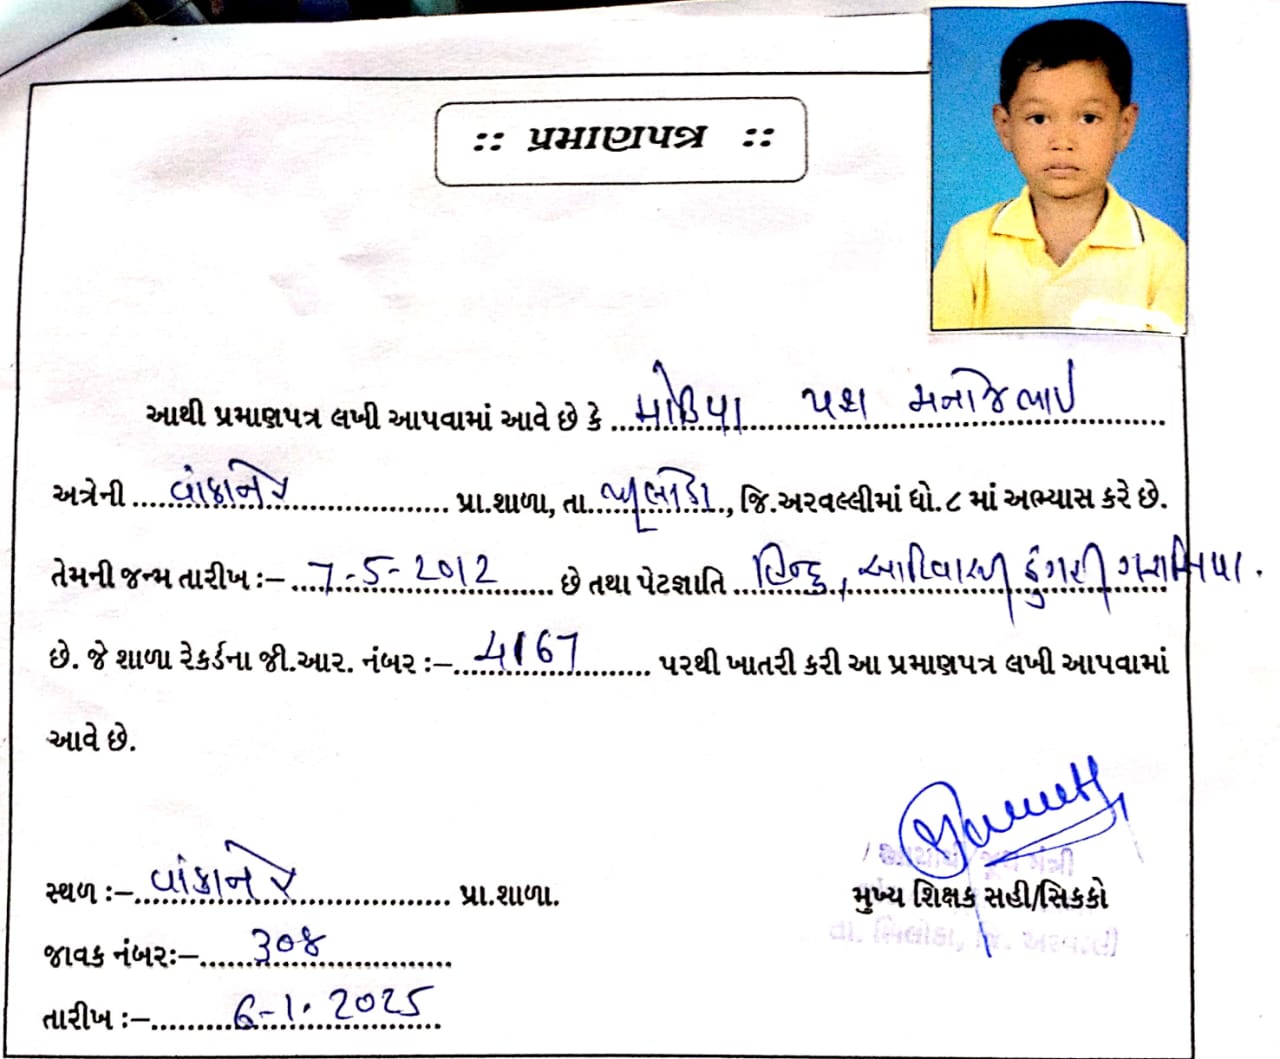 :: પ્રમાણપત્ર ::
આથી પ્રમાણપત્ર લખી આપવામાં આવે છે કે મોડિયા યશ મનોજભાઈ
અત્રેની વાંકાનેર પ્રા.શાળા, તા. ભીલોડા, જિ.અરવલ્લીમાં ધો.૮ માં અભ્યાસ કરે છે.
તેમની જન્મ તારીખ :– 7-5-2012 છે તથા પેટજ્ઞાતિ હિન્દુ, આદિવાસી ડુંગરી ગરાસિયા.
છે. જે શાળા રેકર્ડના જી.આર. નંબર :– 4167 પરથી ખાતરી કરી આ પ્રમાણપત્ર લખી આપવામાં
આવે છે.
સ્થળ :– વાંકાનેર પ્રા.શાળા.
મુખ્ય શિક્ષક સહી/સિકકો
તા. ભિલોડા, જિ. અરવલ્લી
જાવક નંબર:– ૩૦૪
તારીખ :– 6-1.2025